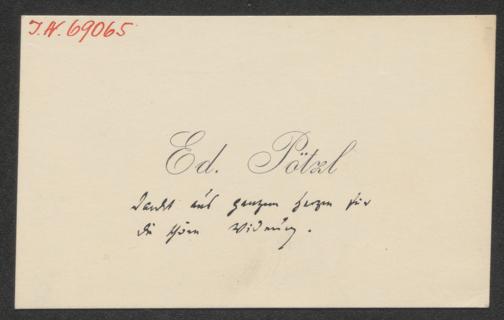 J.N. 69065
Ed. Pötzl
dankt aus ganzem Herzen für
die schöne Widmung.